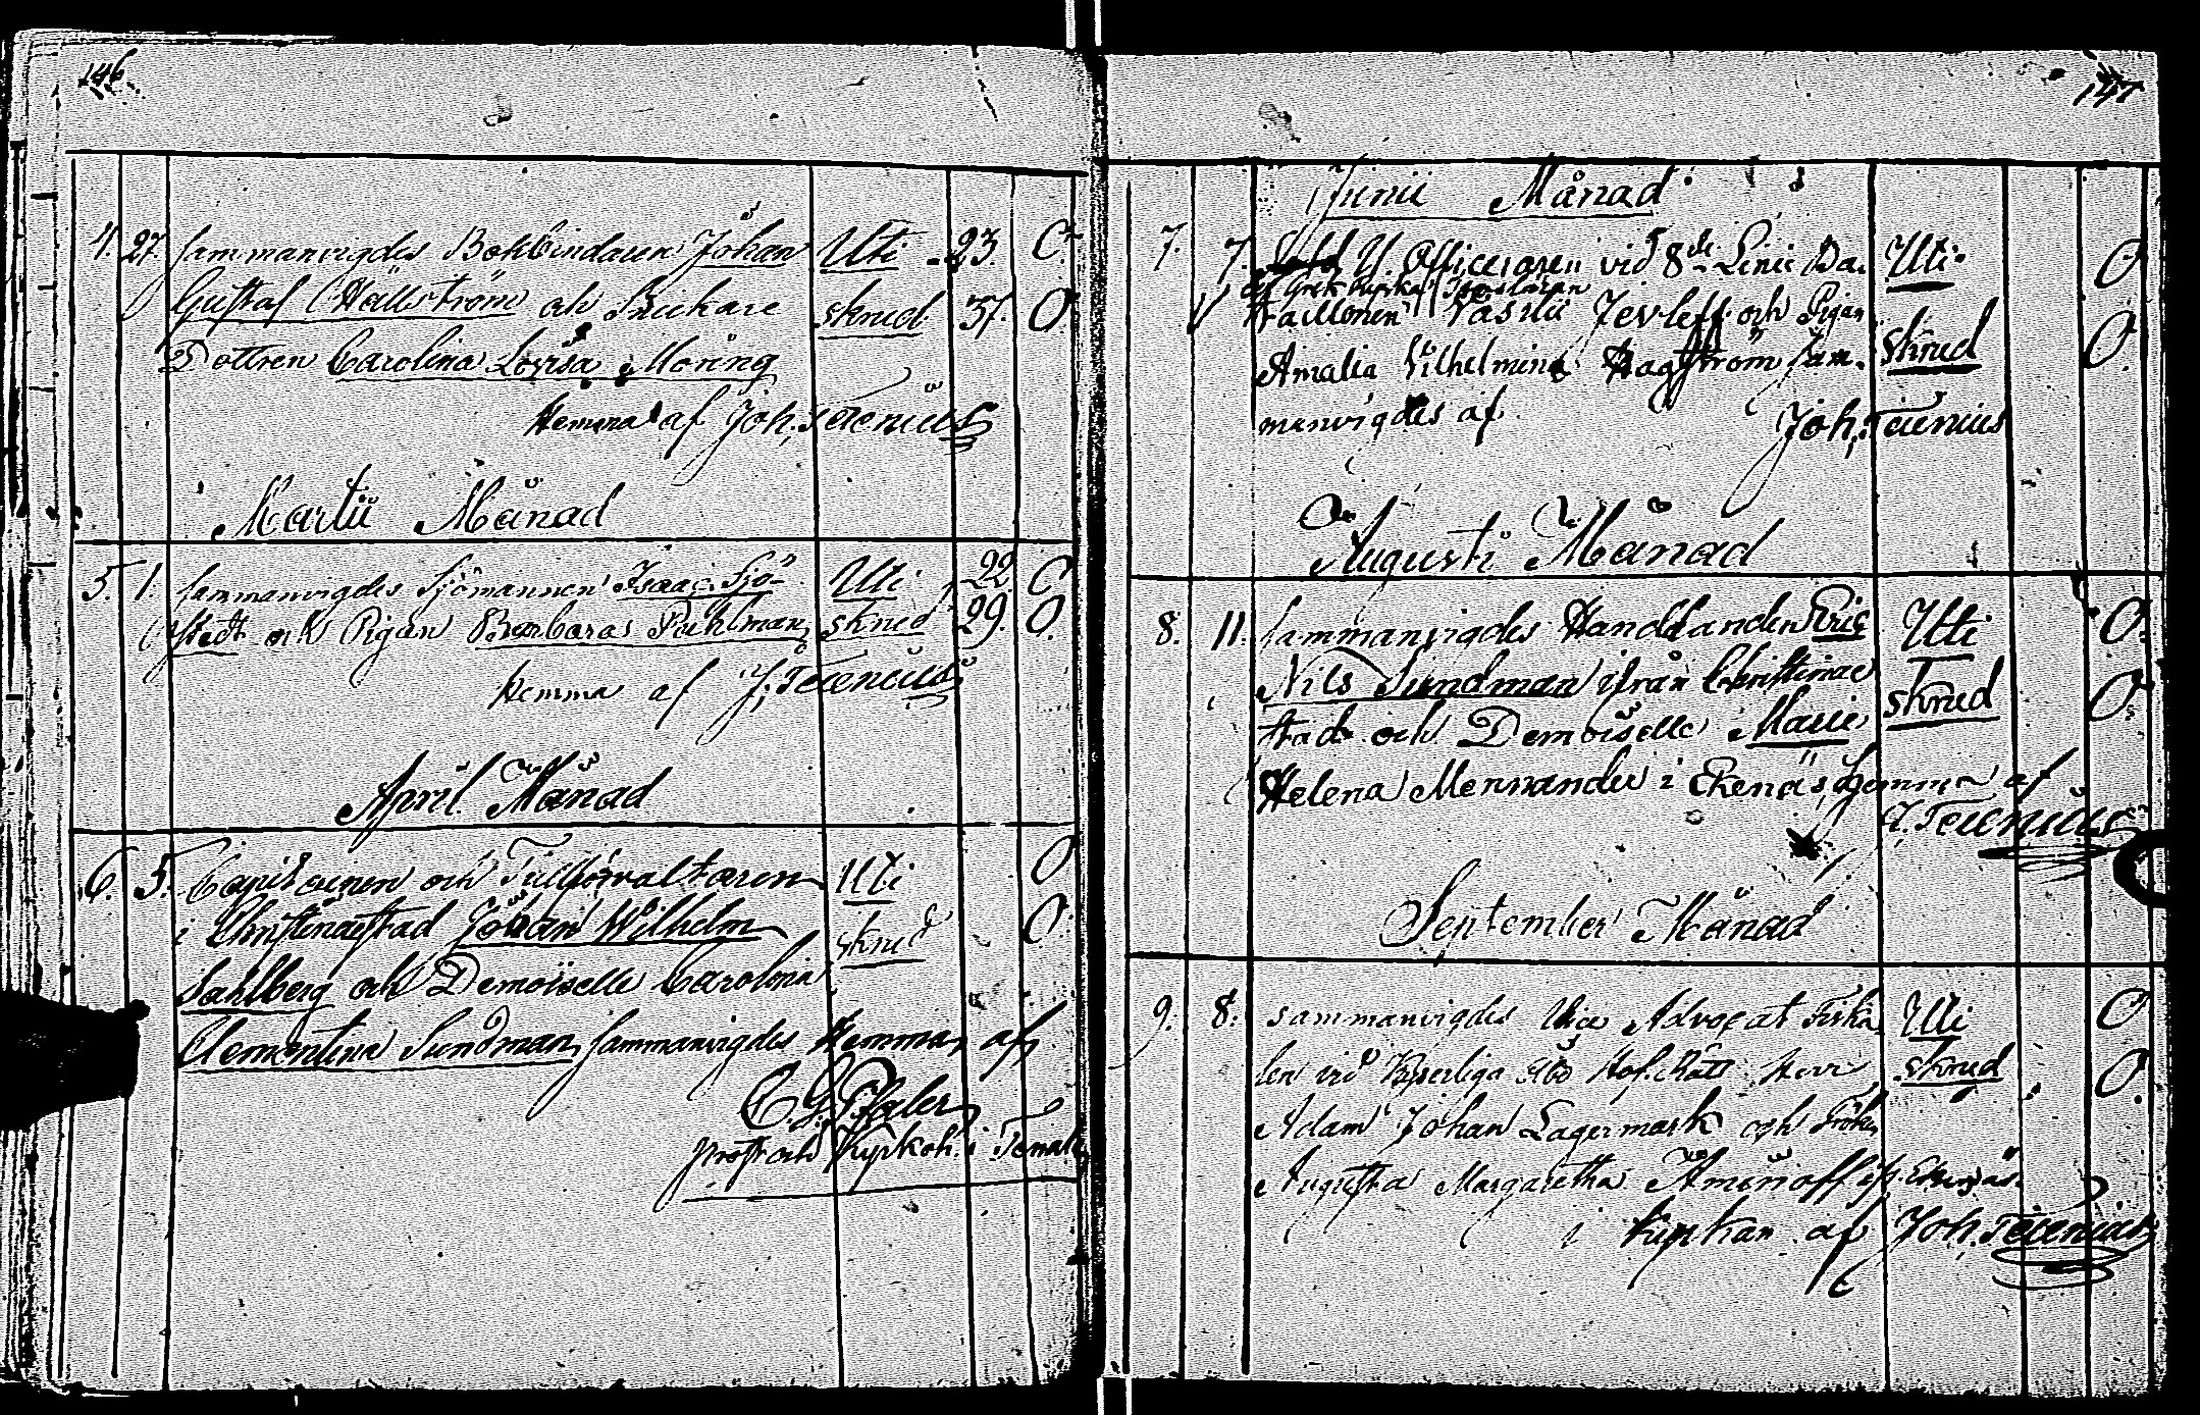 146
4. 27. sammanvigdes Bokbindaren Johan Uti 23. O
Gustaf Hällström och Snickare skrud. 37. O
Dottren Carolina Lovisa Moring
Hemma af Joh. Terenius
Martii Månad
5. 1. sammanvigdes Sjömannen Isaac Sjö- Uti 22 O
stedt och Pigan Barbara Puhlman skrud 29. O.
hemma af J. Terenius
April Månad
6. 5. Capitainen och Tullförvaltaren Uti O
i Christinæstad Johan Wilhelm skrud O.
Sahlberg och Demoiselle Carolina
Clementina Sundman, sammanvigdes Hemma, af
prost och Kyrkoh. i Tenala
147
Junii Månad
7. 7. U. Officeraren vid 8de Linie Ba- Uti O
af Grek Kyrkan
taillonen Vasilii Jevleff och Pigan skrud O.
Amalia Vilhelmina Hagström sam-
manvigdes af Joh. Terenius
Augusti Månad
8. 11. sammanvigdes Handlanden Eric Uti O.
Nils Sundman ifrån Christinæ skrud O.
stad och Demoiselle Maria
Helena Mennander i Ekenäs hemma af
J. Terenius
September Månad
9. 8. sammanvigdes Vice Advocat Fiska Uti O
len vid Kejserliga Åbo Hof-Rätt Herr skrud O.
Adam Johan Lagermark och Fröken
Augusta Margaretha Aminoff Ekenäs
i kyrkan af Joh. Terenius